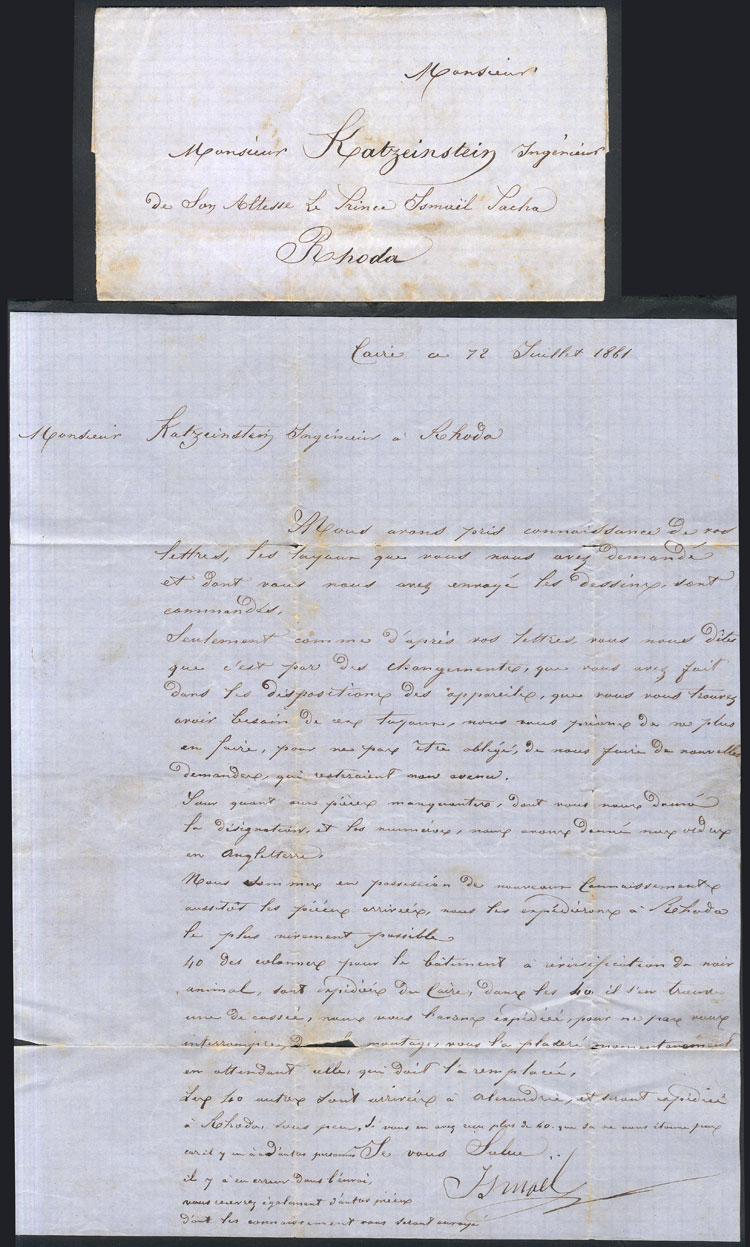 Monsieur
Monsieur Katzeinstein Ingénieur
de Son Altesse Le Prince Ismaël Pacha
Rhoda
Caire a 12 Juillet 1861
Monsieur Katzeinstein Ingénieur à Rhoda
Nous avons pris connaissance de vos
lettres, les tuyaux que vous nous avez demandé
et dont vous nous avez envoyé les dessins, sont
commandés.
Seulement comme d'après vos lettres, vous nous dites
que c'est par des changements, que vous avez fait
dans les dispositions des appareils, que vous vous trouvez
avoir besoin de ces tuyaux, nous vous prions de ne plus
en faire, pour ne pas être obligé, de nous faire de nouvelles
demandes, qui resteraient non avenu.
Pour quant aux pièces manquantes, dont vous nous donné
la désignation, et les numéros, nous avons donné nos ordres
en Angleterre.
Nous sommes en possession de nouveaux Connaissements
aussitôt les pièces arrivées, nous les expédierons à Rhoda
le plus vivement possible
40 des colonnes pour le bâtiment à révivification de noir
animal, sont expédiées du Caire, dans les 40 il s'en trouve
une de cassée, nous vous l'avons expédiée, pour ne pas vous
interrompre montage, vous la placeré momentanément
en attendant celle, qui doit la remplacée.
Les 40 autres sont arrivées à Alexandrie, et seront expédiée
à Rhoda, sous peu, Si vous en avez reçu plus de 40. que sa ne vous étonne pas
car il y en à d'autres Je vous Salue
il y à eu erreur dans l'envoi,
vous recevrez également d'autres pièces
d'ont les connaissement vous seront envoyé
Ismaël